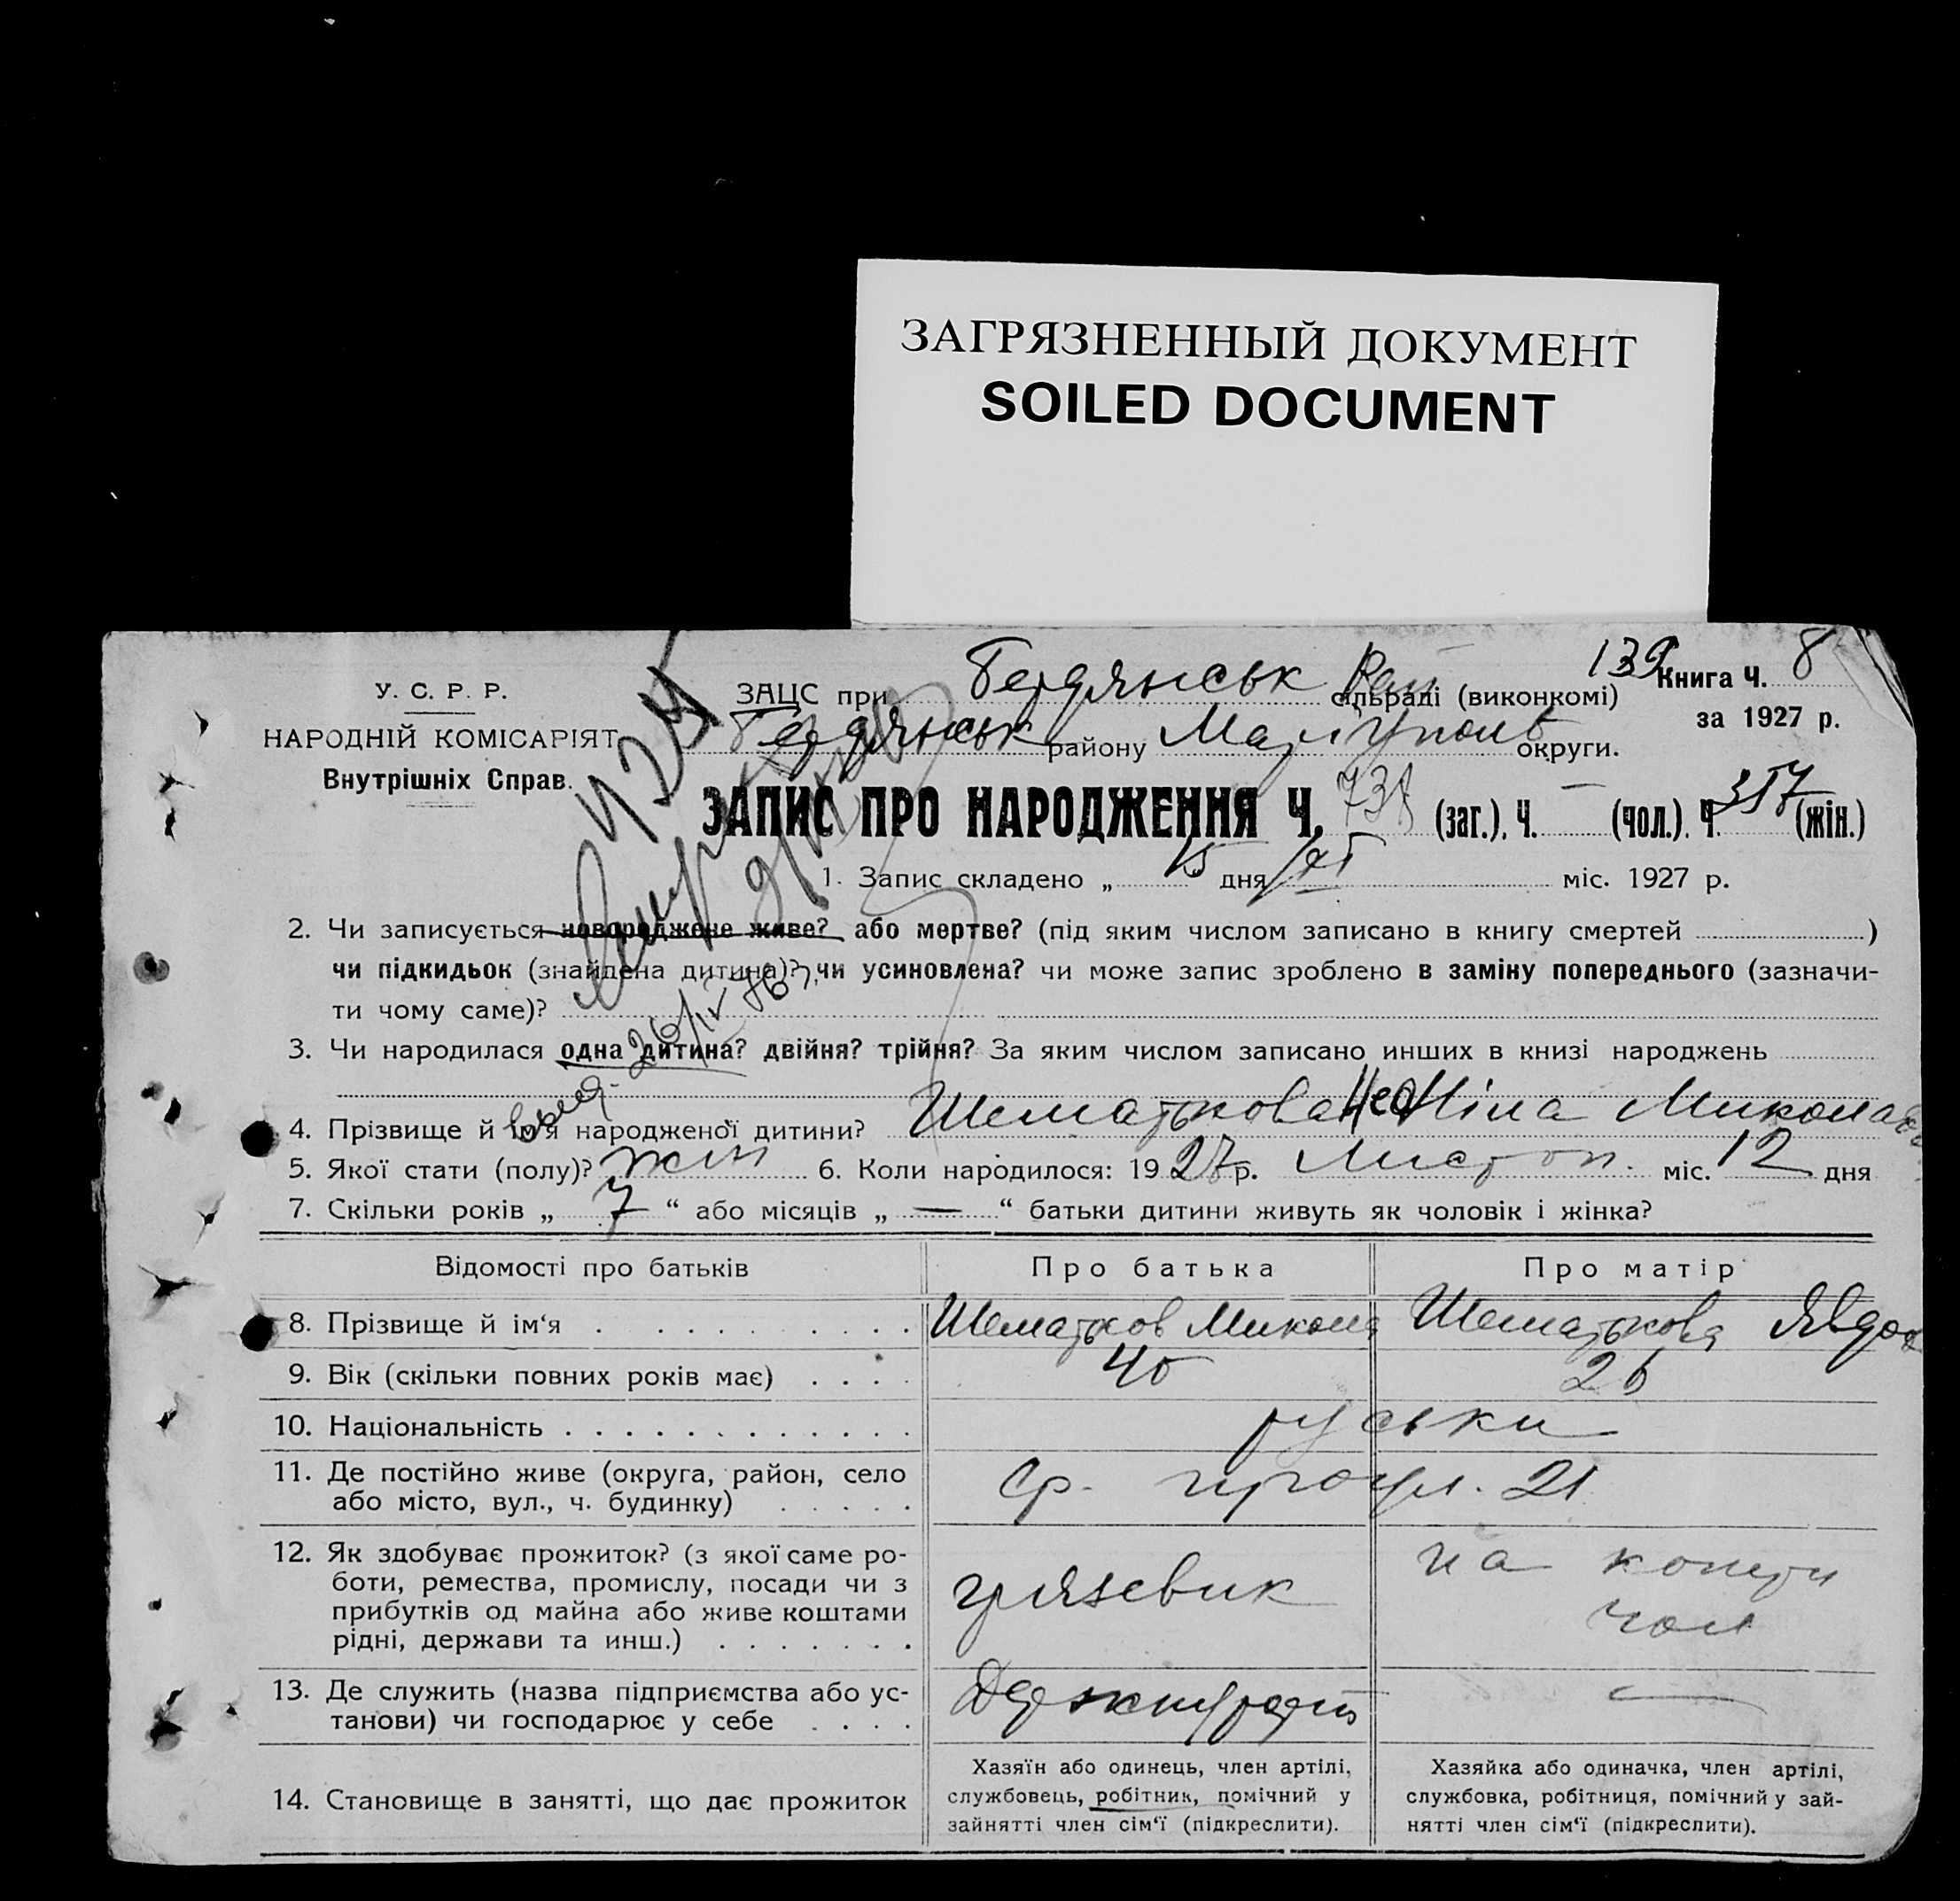 ЗАГРЯЗНЕННЫЙ ДОКУМЕНТ
SOILED DOCUMENT
У. С. Р. Р.
НАРОДНІЙ КОМІСАРІЯТ
Внутрішніх Справ.
ЗАЦС при Бердянськ Рай сільраді (виконкомі)
139 Книга Ч. 8
за 1927 р.
Бердянськ району Маріуполь округи.
ЗАПИС ПРО НАРОДЖЕННЯ Ч. 738 (заг.), Ч. — (чол.). Ч. 357 (жін.)
1. Запис складено „ 15 " дня XI міс. 1927 р.
2. Чи записується новороджене живе? або мертве? (під яким числом записано в книгу смертей )
чи підкидьок (знайдена дитина)? чи усиновлена? чи може запис зроблено в заміну попереднього (зазначи-
ти чому саме)?
3. Чи народилася одна дитина? двійня? трійня? За яким числом записано инших в книзі народжень
4. Прізвище й ім'я народженої дитини? Шематькова Ніла
5. Якої стати (полу)? жін 6. Коли народилося: 1927 р. Листоп. міс. 12 дня
7. Скільки років „ 7 “ або місяців „ — “ батьки дитини живуть як чоловік і жінка?
Відомості про батьків
Про батька
Про матір
8. Прізвище й ім‘я
Шематьков Микола
Шематькова Явдох
9. Вік (скільки повних років має)
40
26
10. Національність
руськи
11. Де постійно живе (округа, район, село
або місто, вул., ч. будинку)
Ср. 21
12. Як здобуває прожиток? (з якої саме ро-
боти, ремества, промислу, посади чи з
прибутків од майна або живе коштами
рідні, держави та инш.)
грязевик
на кошти
чол
13. Де служить (назва підприємства або ус-
танови) чи господарює у себе
Держкурорт
—
14. Становище в занятті, що дає прожиток
Хазяїн або одинець, член артілі,
службовець, робітник, помічний у
зайнятті член сім‘ї (підкреслити).
Хазяйка або одиначка, член артілі,
службовка, робітниця, помічний у зай-
нятті член сім‘ї (підкреслити).